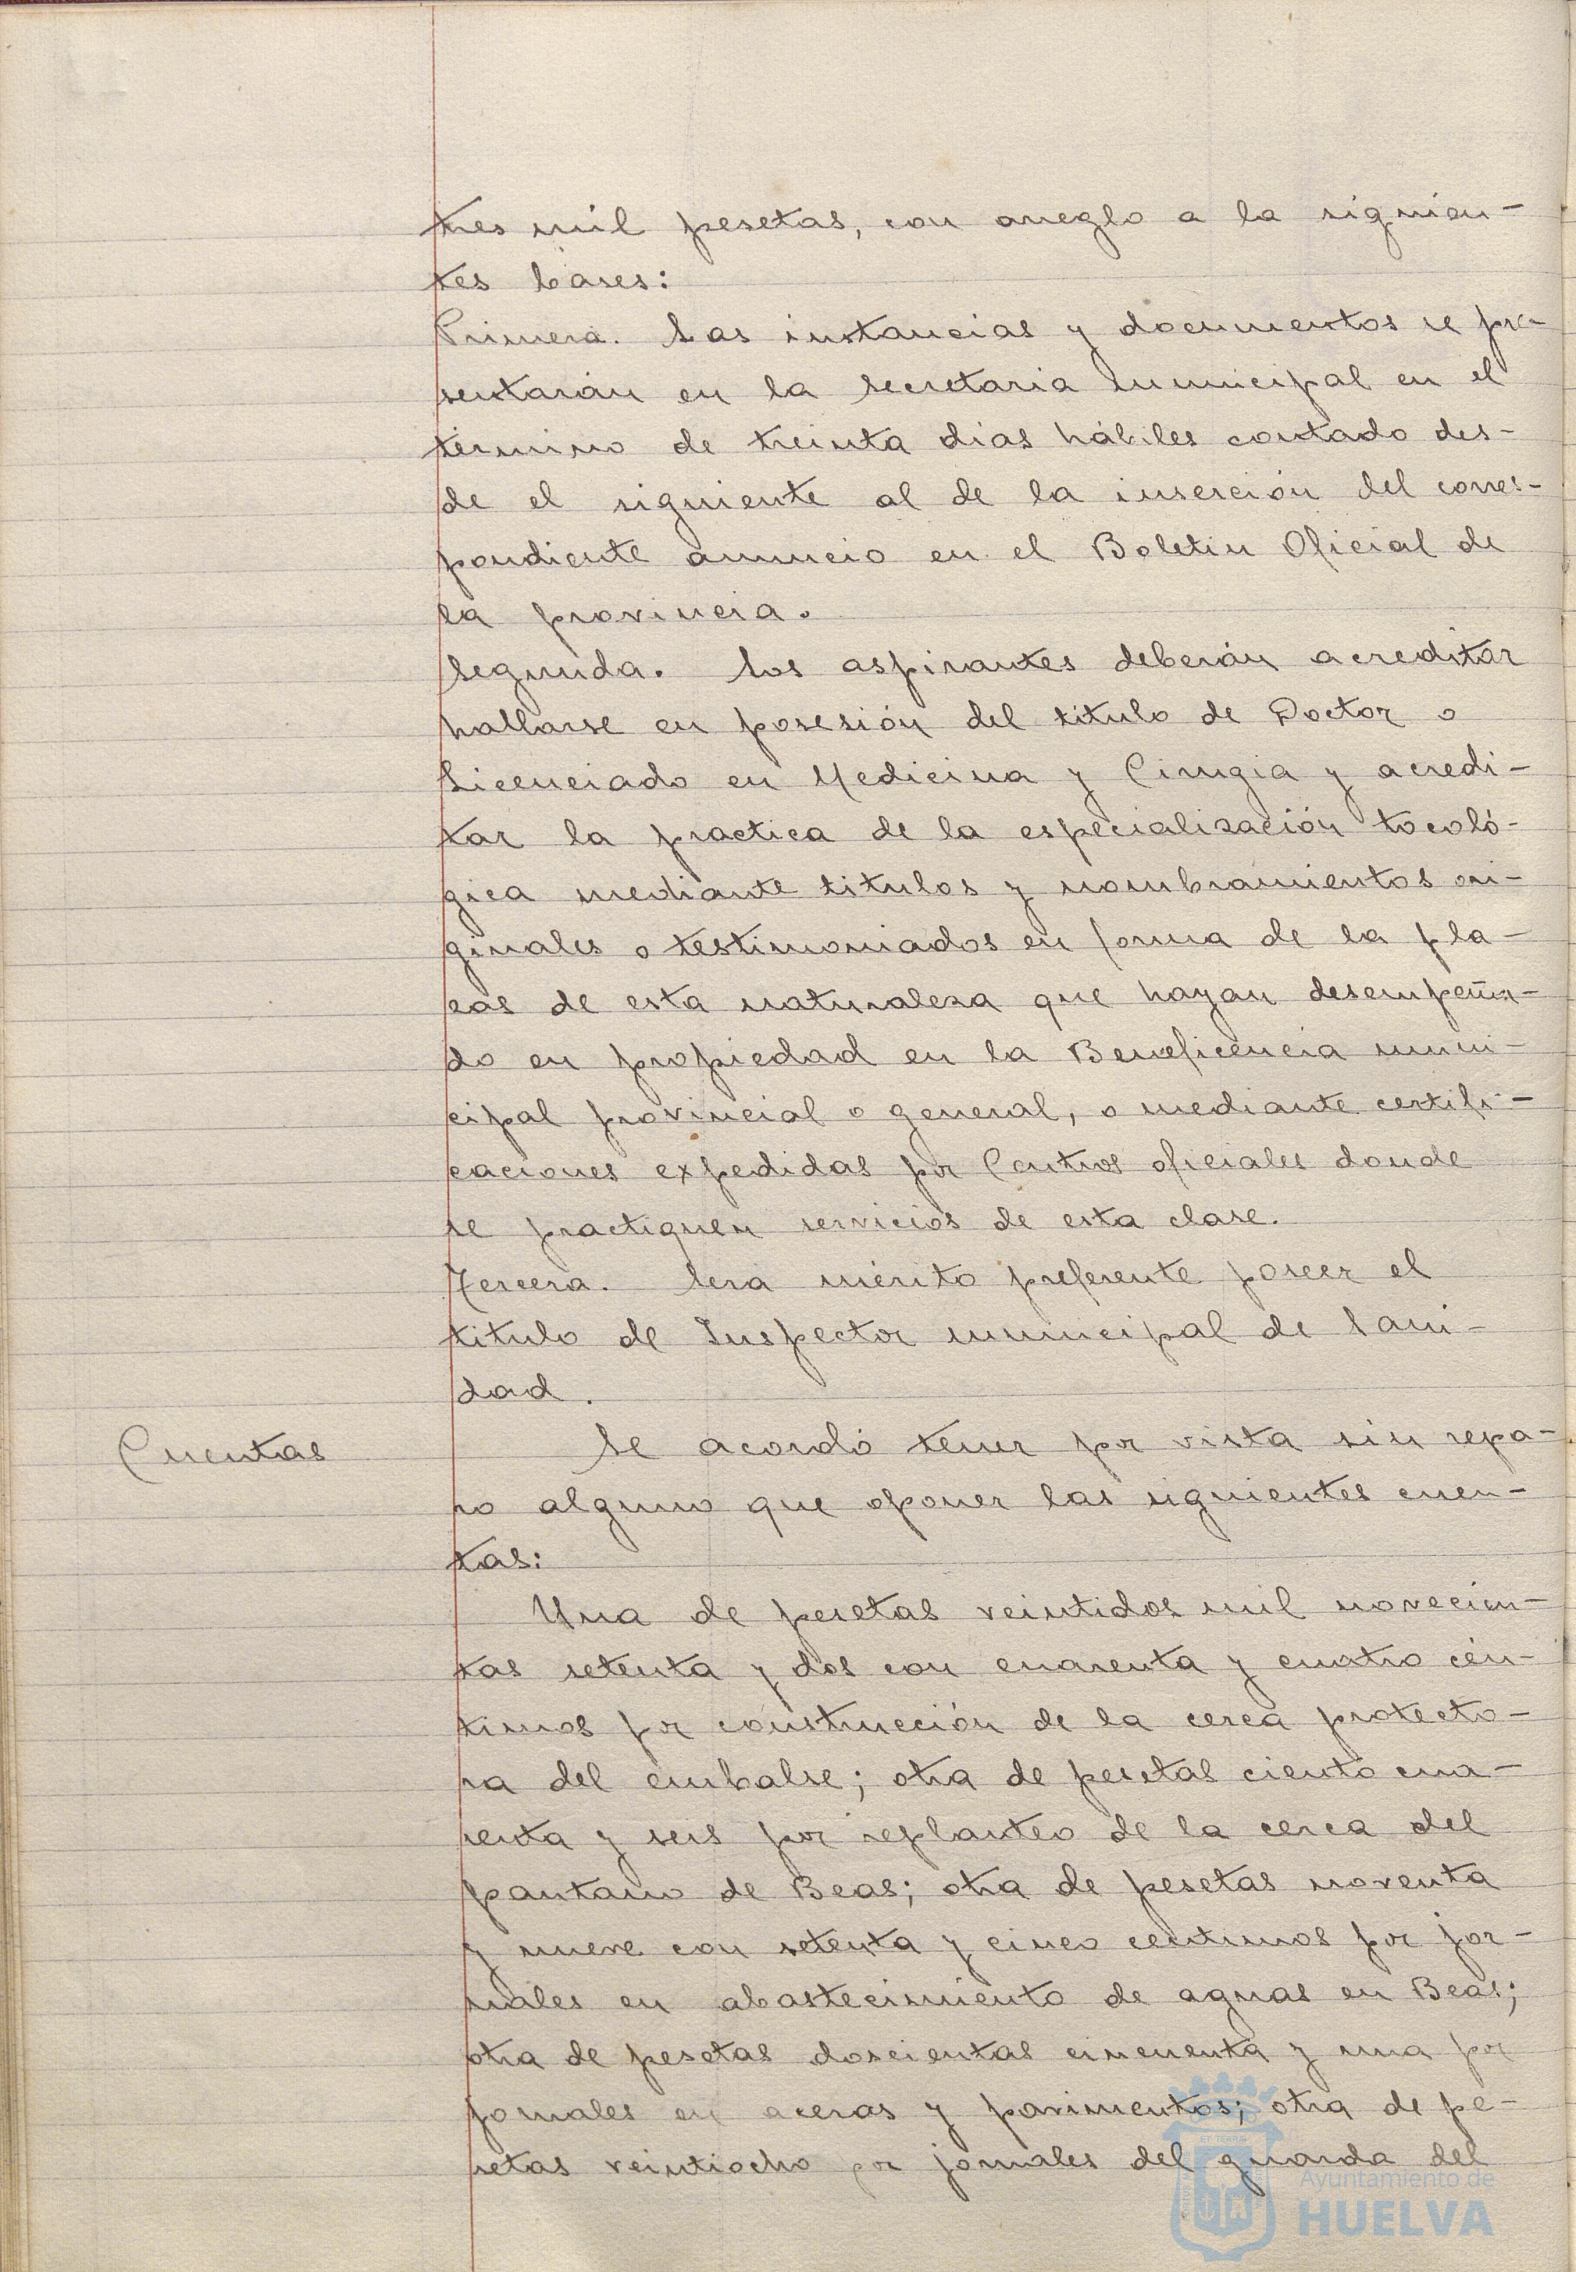 tres mil pesetas, con arreglo a la siguien-
tes bases:
Primera. Las instancias y documentos se pre-
sentarán en la secretaria municipal en el
término de treinta dias hábiles contado des-
de el siguiente al de la inserción del corres-
pondiente anuncio en el Boletin Oficial de
la provincia.
Segunda. Los aspirantes deberán acreditar
hallarse en posesión del titulo de Doctor o
Licenciado en Medicina y Cirugia y acredi-
tar la practica de la especialización tocoló-
gica mediante titulos y nombramientos ori-
ginales o testimoniados en forma de la pla-
zas de esta naturaleza que hayan desempeña-
do en propiedad en la Beneficencia muni-
cipal provincial o general, o mediante certifi-
caciones expedidas por Centros oficiales donde
se practiquen servicios de esta clase.
Tercera. Será mérito preferente poseer el
titulo de Inspector municipal de Sani-
dad.
Cuentas
Se acordó tener por vista sin repa-
ro alguno que oponer las siguientes cuen-
tas:
Una de pesetas veintidos mil novecien-
tas setenta y dos con cuarenta y cuatro cén-
timos por construcción de la cerca protecto-
ra del embalse; otra de pesetas ciento cua-
renta y seis por replanteo de la cerca del
pantano de Beas; otra de pesetas noventa
y nueve con setenta y cinco centimos por jor-
nales en abastecimiento de aguas en Beas;
otra de pesetas doscientas cincuenta y una por
jornales en aceras y pavimentos; otra de pe-
setas veintiocho por jornales del guarda del
Ayuntamiento de
HUELVA